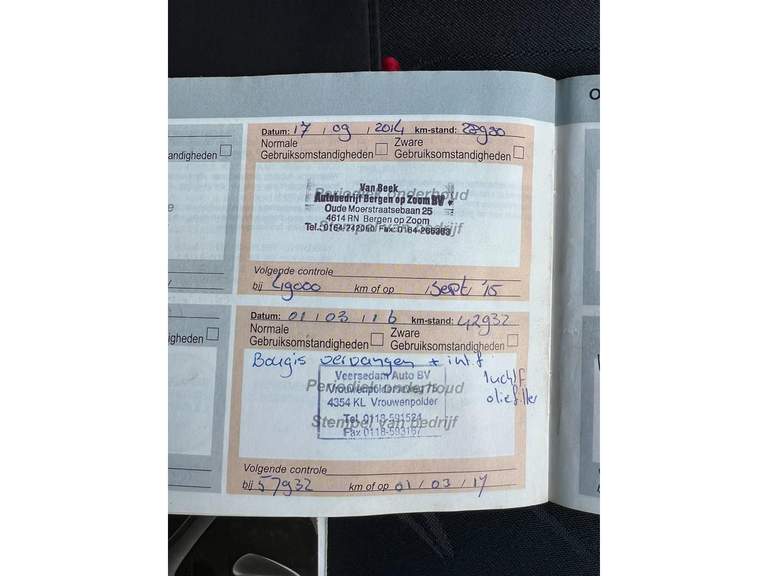 O
Datum: 17 / 09 / 2014 km-stand:
andigheden
Normale Gebruiksomstandigheden
Zware Gebruiksomstandigheden
Periodiek onderhoud
Van Beek
Autobedrijf Bergen op Zoom BV
Oude Moerstraatsebaan 25
4614 RN Bergen op Zoom
Tel.: 0164-242060 Fax: 0164-266363
Stempel van bedrijf
Volgende controle
bij 49000 km of op Sept '15
Datum: 01 / 03 / 16 km-stand: 42932
igheden
Normale Gebruiksomstandigheden
Zware Gebruiksomstandigheden
Bougis vervangen + int.f
luchtf
oliefilter
Veersedam Auto BV
Periodiek onderhoud
Vrouwenpolderseweg 75
4354 KL Vrouwenpolder
Tel. 0118-591524
Stempel van bedrijf
Fax 0118-593167
Volgende controle
bij 57932 km of op 01 / 03 / 17